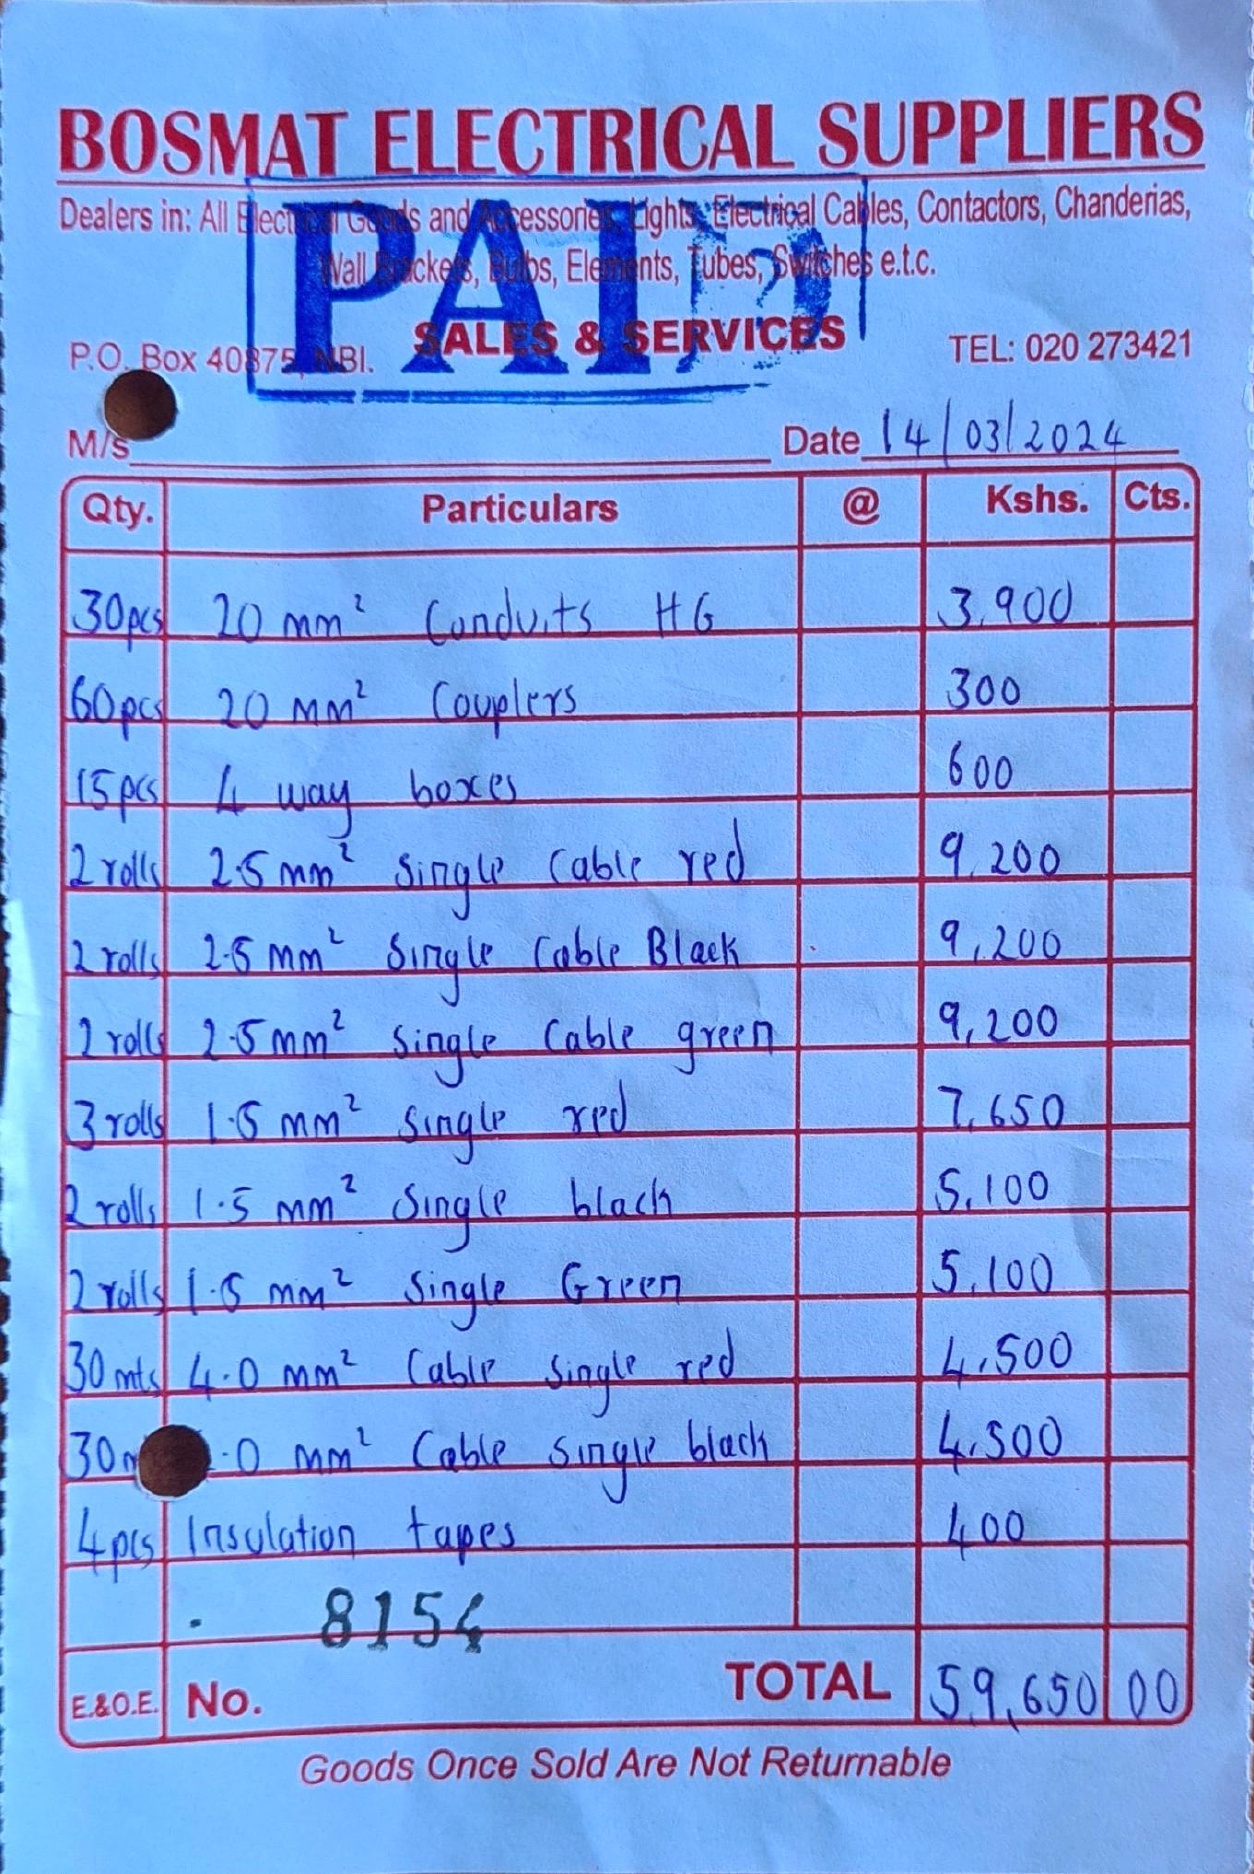 BOSMAT ELECTRICAL SUPPLIERS
Dealers in: All Electrical Goods and Accessories, Lights, Electrical Cables, Contactors, Chanderias,
Wall Brackets, Bulbs, Elements, Tubes, Switches e.t.c.
PAID
SALES & SERVICES
P.O. Box 40875, NBI. TEL: 020 273421
M/s Date 14/03/2024
Qty. Particulars @ Kshs. Cts.
30pcs 20 mm² Conduits HG 3,900
60pcs 20 mm² Couplers 300
15pcs 4 way boxes 600
2 rolls 2.5 mm² Single Cable red 9,200
2 rolls 2.5 mm² Single Cable Black 9,200
2 rolls 2.5 mm² Single Cable green 9,200
3 rolls 1.5 mm² Single red 7,650
2 rolls 1.5 mm² Single black 5,100
2 rolls 1.5 mm² Single Green 5,100
30 mts 4.0 mm² Cable Single red 4,500
30 .0 mm² Cable Single black 4,500
4pcs Insulation tapes 400
8154
E.&O.E. No. TOTAL 59,650 00
Goods Once Sold Are Not Returnable